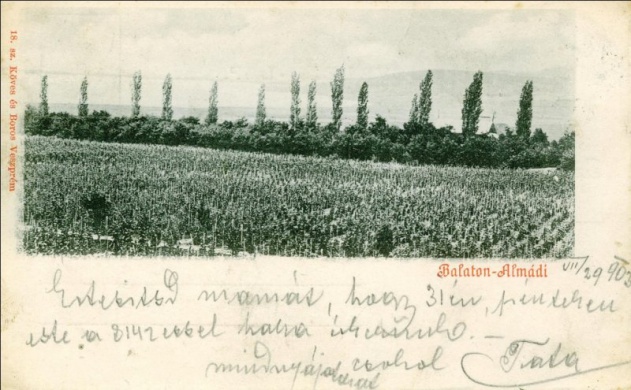 18. sz. Köves és Boros Veszprém
Balaton-Almádi
VII/29 903
Értesitsd mamát, hogy 31én, pénteken
este a 814
haza érkezünk.
mindnyájatokat csokol Tata